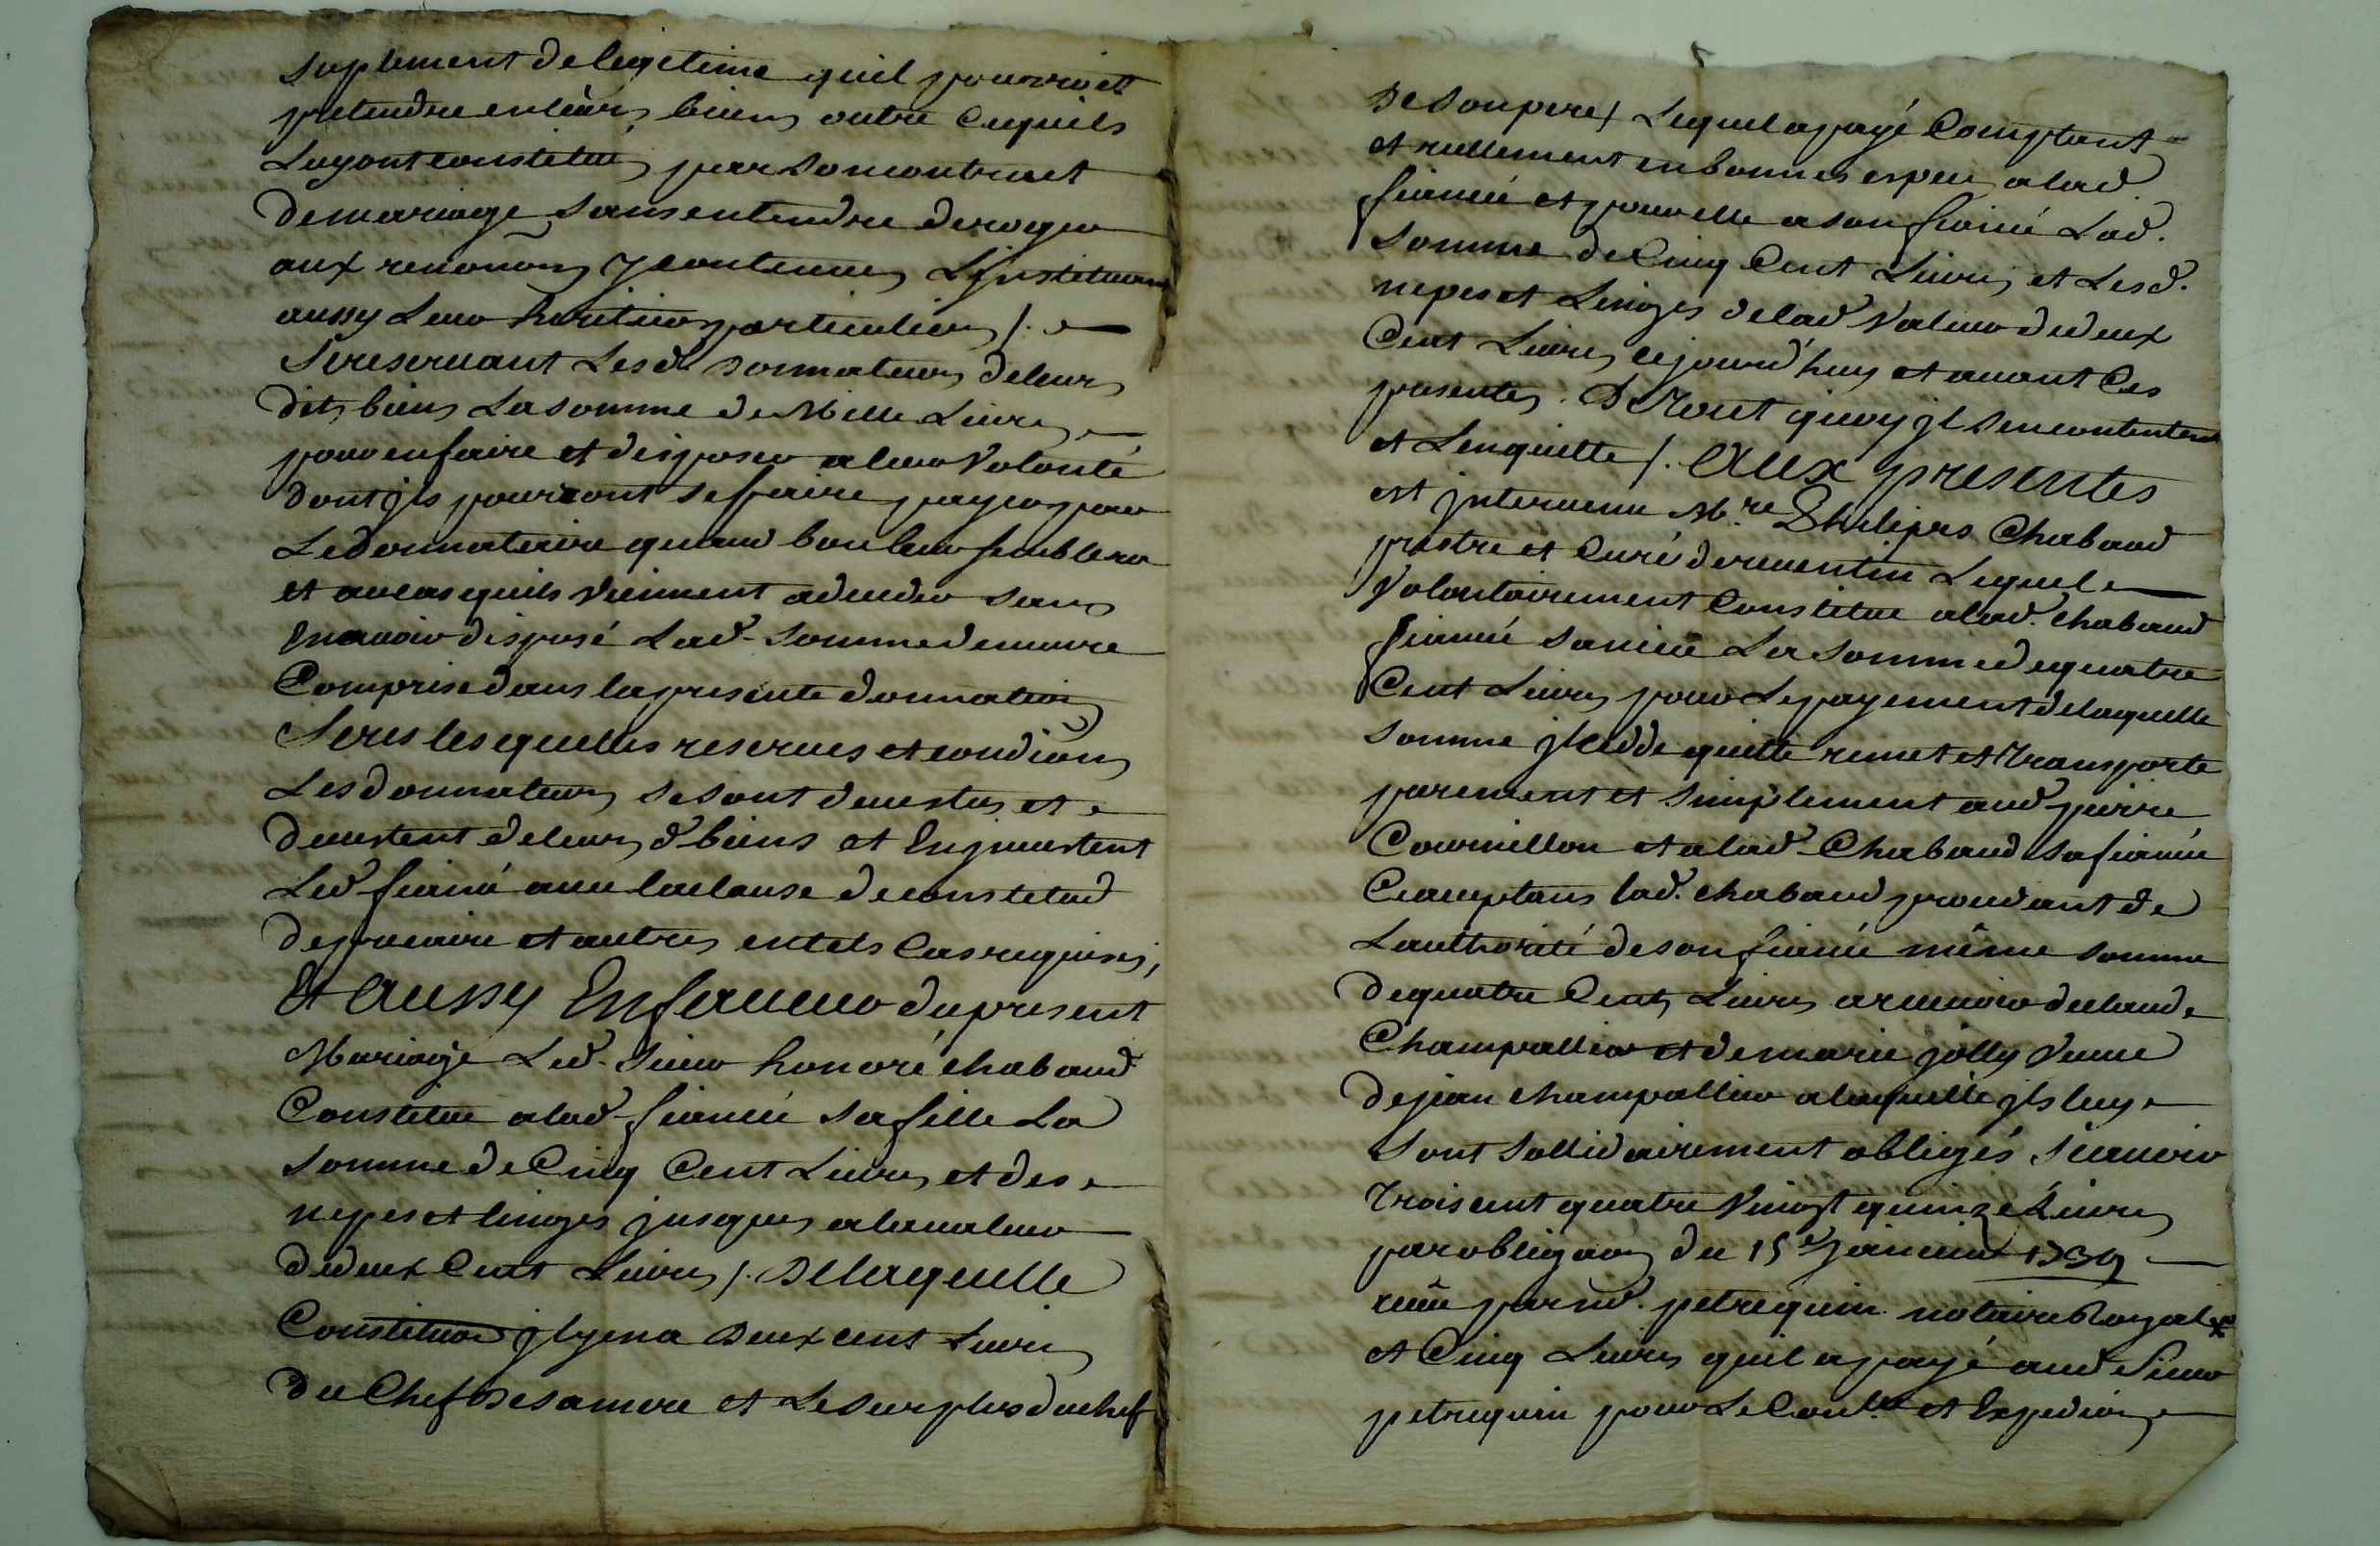 suplement de legitime quil pourroit
pretendre en leurs biens outre cequils
Luy ont constitué par son contract
de mariage sans entendre deroger
aux renonons y contenues Linstituans
aussy Leur heritier particulier /.
Se reservant Lesd donnateurs de leurs
dits biens La somme de Mille Livres
pour en faire et disposer a leur Volonté
dont jls pourront se ffaire payer par
Le donnataire quand bon leur semblera
et au cas quils viennent a deceder sans
En avoir disposé Lad. somme demeure
Comprise dans la presente donnation
Seres lesquelles reserves et condions
Les donnateurs se sont devestus et
devestent de leurs d biens et En jnvestent
Led fiancé avec la clause de constitud
de precaire et autres en tels cas requises,
Et aussy En faveur du present
Mariage Led. sieur honoré chabaud
Constitue a lad fiancée sa fille La
somme de Cinq Cent Livres et des
nipes et linges jusques a la valeur
de deux Cent Livres /. De laquelle
Constituon jl y en a Deux cent Livres
du Chef De sa mere et Le surplus du chef
De son pere / Lequel a payé Comptant
et reellement en bonnes espes a lad
fiancée et pour elle a son fiancé Lad.
somme de Cinq Cent Livres et Lesd.
nipes et Linges de lad Valeur de deux
Cent Livres cejourd'huy et avant Ces
presentes. De Tout quoy jls sen contentent
et Len quitte /. Aux presentes
est jntervenu Mre Philipes Chabaud
prestre et Curé de reventin Lequel
Volontairement Constitue a lad. Chabaud
fiancée sa niece La somme de quatre
Cent Livres pour Le payement de laquelle
somme jl cedde quitte remet et Transporte
purement et simplement aud pierre
Cornillon et a lad Chabaud sa fiancée
Ceacceptans lad. chabaud procedant de
Lauthorité de son fiancé même somme
de quatre Cent Livres a recevoir de claude
Champallier et de marie jolly Veuve
de jean champallier a laquelle jls luy
sont sollidairement obligés scavoir
Trois cent quatre Vingt quinze Livres
par obligaon du 15e Janvier 1739
reçue par md. petrequin notaire Royal
et Cinq Livres quil a payé aud Sieur
petrequin pour Le Conlle et Expedion